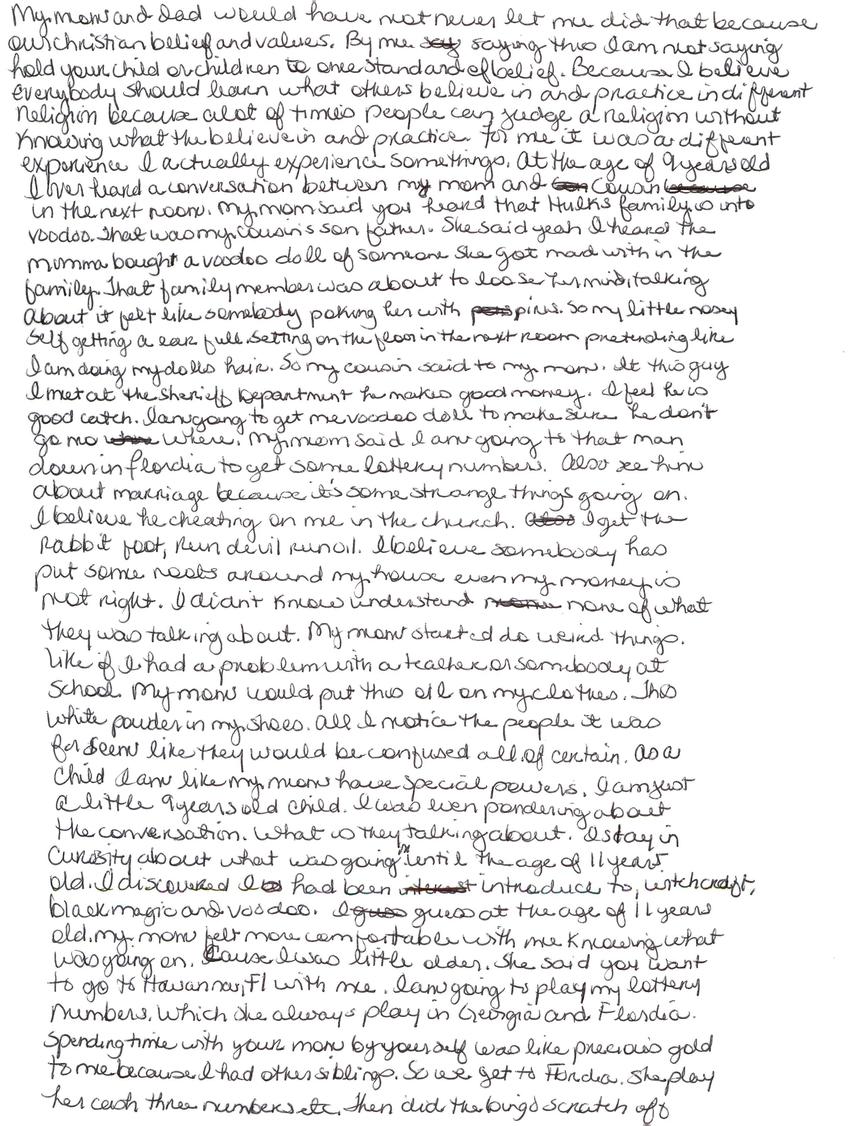 My mom and dad would have not never let me did that because
our christian belief and values. By me say saying this I am not saying
hold your child or children to one standard of belief. Because I believe
everybody should learn what others believe in and practice in different
Religion because alot of times people can judge a religion without
knowing what the believe in and practice. For me it was a different
experience I actually experience somethings. At the age of 9 years old
I over heard a conversation between my mom and Cousin because
in the next room. My mom said you heard that Hulks family is into
voodoo. That was my cousin's son father. She said yeah I heard the
momma bought a voodoo doll of someone she got mad with in the
family. That family member was about to loose her mind, talking
about it felt like somebody poking her with pins. So my little nosey
self getting a ear full. Setting on the floor in the next room pretending like
I am doing my dolls hair. So my cousin said to my mom. It this guy
I met at the Sheriff Department he makes good money. I feel he is
good catch. I am going to get me voodoo doll to make sure he don't
go no where. My mom said I am going to that man
down in Flordia to get some lottery numbers. Also see him
about marriage because it's some strange things going on.
I believe he cheating on me in the church. Also I get the
Rabbit foot, Run devil run oil. I believe somebody has
put some roots around my house even my money is
not right. I didn't know understand none of what
they was talking about. My mom started do weird things.
like if I had a problem with a teacher or somebody at
School. My mom would put this oil on my clothes. This
white powder in my shoes. All I notice the people it was
for seem like they would be confused all of certain. As a
child I am like my mom have special powers. I am just
a little 9 years old child. I was even pondering about
the conversation. What is they talking about. I stay in
Curosity about what was going on until the age of 11 years
old. I discovered I had been interest introduce to, witchcraft,
black magic and voodoo. I guess guess at the age of 11 years
old. my mom felt more comfortable with me knowing what
was going on. Cause I was little older. She said you want
to go to Havannas, Fl with me. I am going to play my lottery
numbers. Which she always play in Georgia and Flordia.
Spending time with your mom by yourself was like precious gold
to me because I had other siblings. So we get to Flordia. She play
her cash three numbers etc. Then did the bingo scratch off